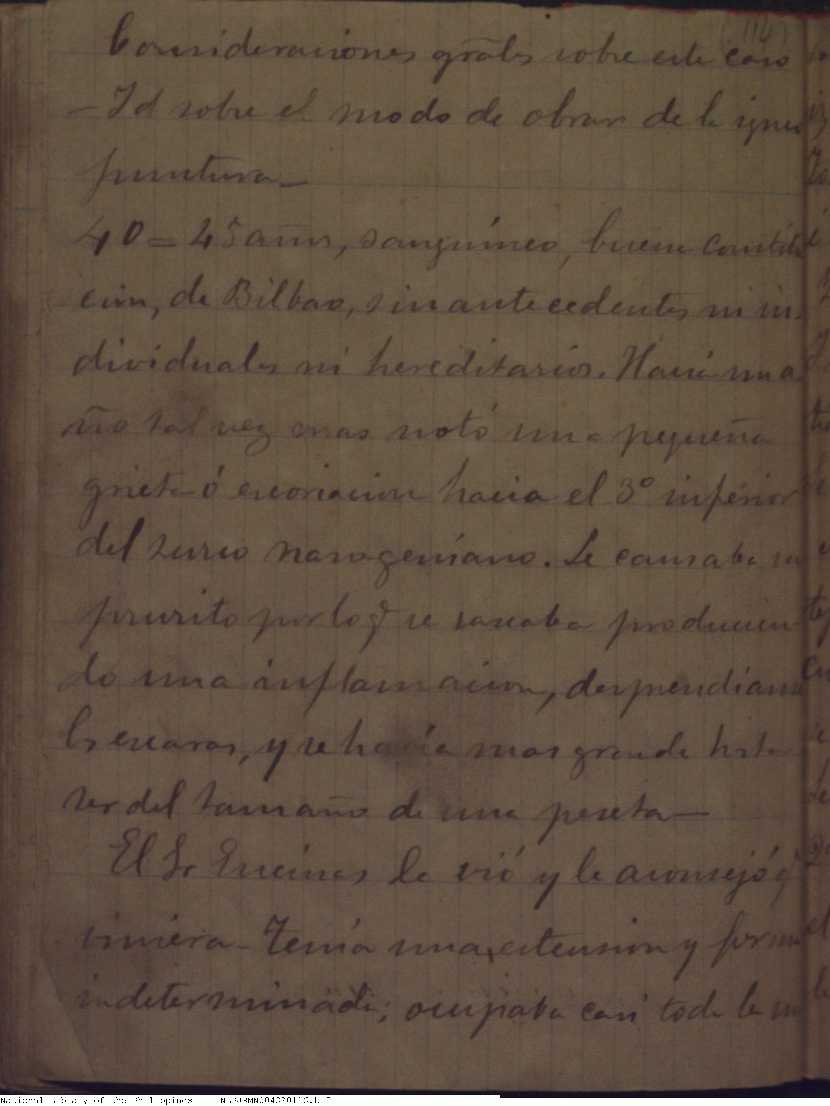 114
Consideraciones grāles sobre este caso
- Id sobre el modo de obrar de la igni
puntura_
40 = 45 años, sanguíneo, buena constitu
cion, de Bilbao, sin antecedentes ni in-
dividuales ni hereditarios. Hací un a
ño tal vez notó una pequeña
grieta ó escoriacion hacia el 3º inferior
del surco nasogeniano. Le causaba un
prurito por lo q̃ se rascaba producien
do una inflamacion, desprendianse
las escaras, y se hacía mas grande hasta
ser del tamaño de una peseta —
El Sr Encinas le vió y le aconsejó q̃
viniera - Tenía una estension y forma
indeterminada; ocupaba casi toda la m